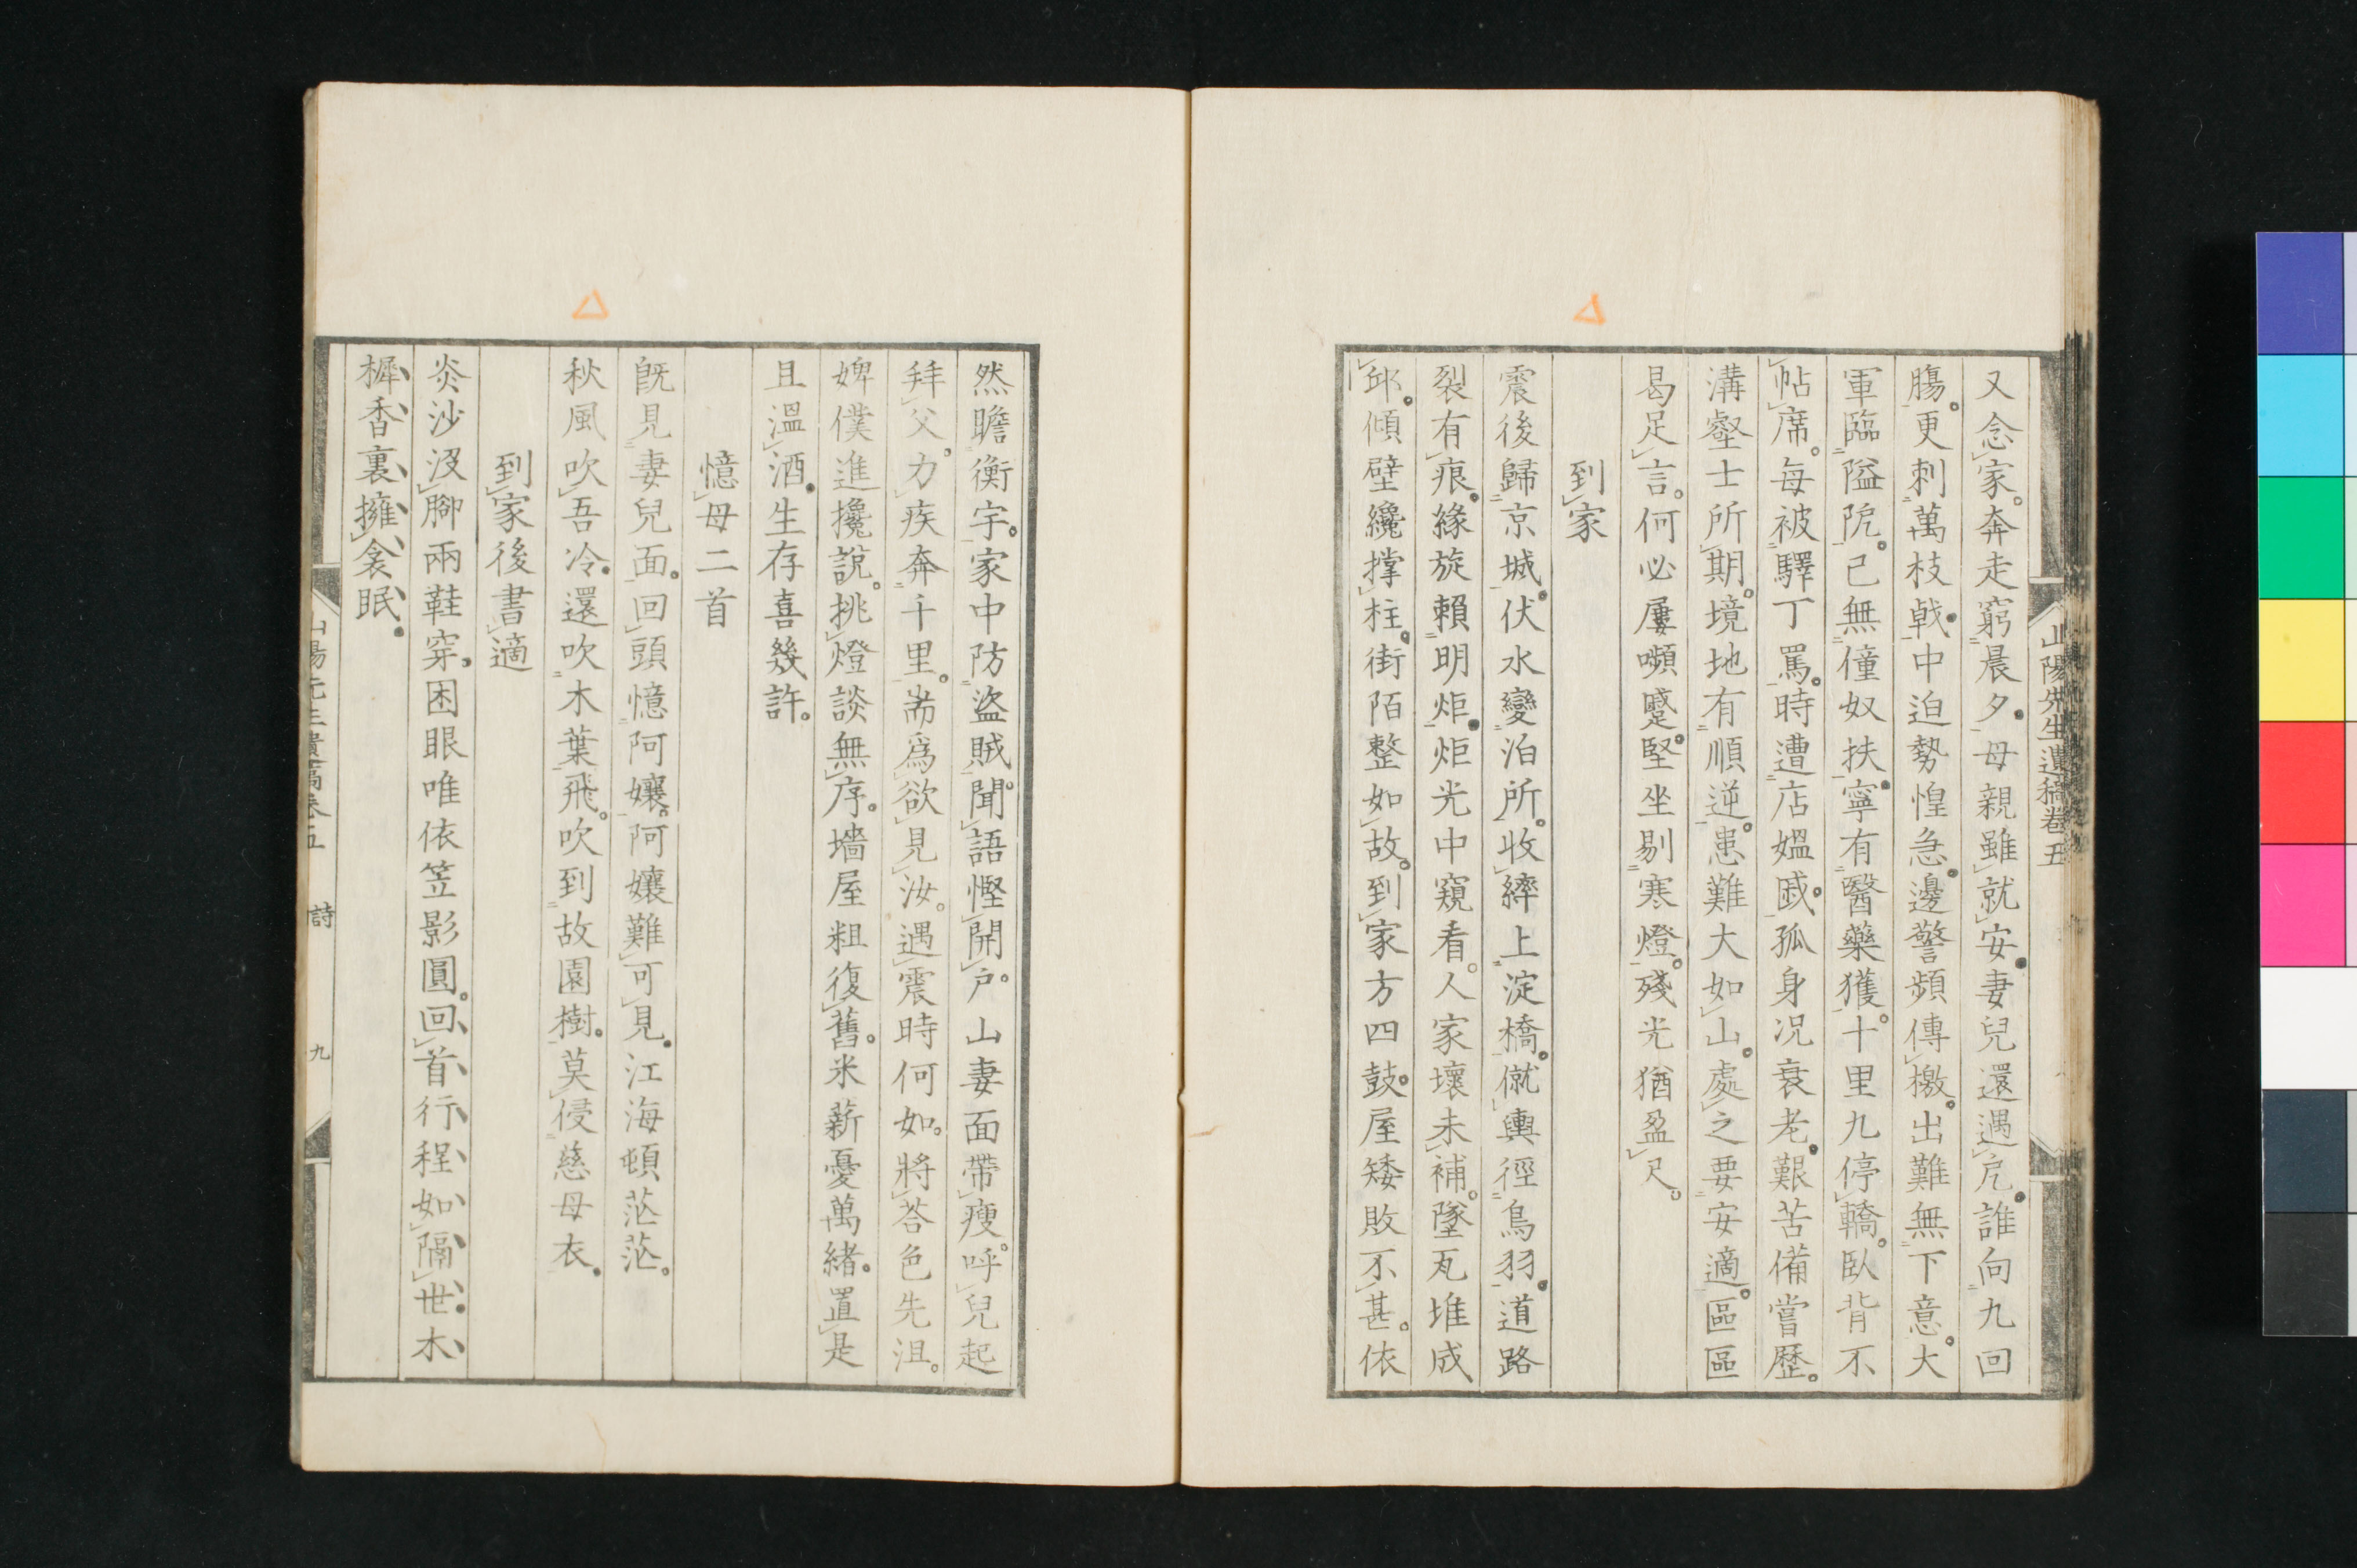 山陽先生遺稿卷五
又念家。奔走窮晨夕。母親雖就安。妻兒還遇戹。誰向九回
腸。更刺萬枝戟。中迫勢惶急。邊警頻傳檄。出難無下意。大
軍臨隘阨。已無僮奴扶。寧有醫藥獲。十里九停轎。臥背不
帖席。每被驛丁罵。時遭店媼戚。孤身况衰老。艱苦備嘗歷。
溝壑士所期。境地有順逆。患難大如山。處之要安適。區區
曷足言。何必屢嚬蹙。堅坐剔寒燈。殘光猶盈尺。
到家
震後歸京城。伏水變泊所。收繂上淀橋。僦輿徑鳥羽。道路
裂有痕。緣旋賴明炬。炬光中窺看。人家壞未補。墜瓦堆成
邱。傾壁纔撑柱。街陌整如故。到家方四鼓。屋矮敗不甚。依
然瞻衡宇。家中防盜賊。聞語慳開戶。山妻面帶瘦。呼兒起
拜父。力疾奔千里。耑爲欲見汝。遇震時何如。將荅色先沮。
婢僕進攙說。挑燈談無序。墻屋粗復舊。米薪憂萬緒。置是
且溫酒。生存喜幾許。
憶母二首
旣見妻兒面。回頭憶阿孃。阿孃難可見。江海頓茫茫。
秋風吹吾冷。還吹木葉飛。吹到故園樹。莫侵慈母衣。
到家後書適
炎沙沒腳兩鞋穿。困眼唯依笠影圓。回首行程如隔世。木
樨香裏擁衾眠。
山陽先生遺稿卷五 詩 九